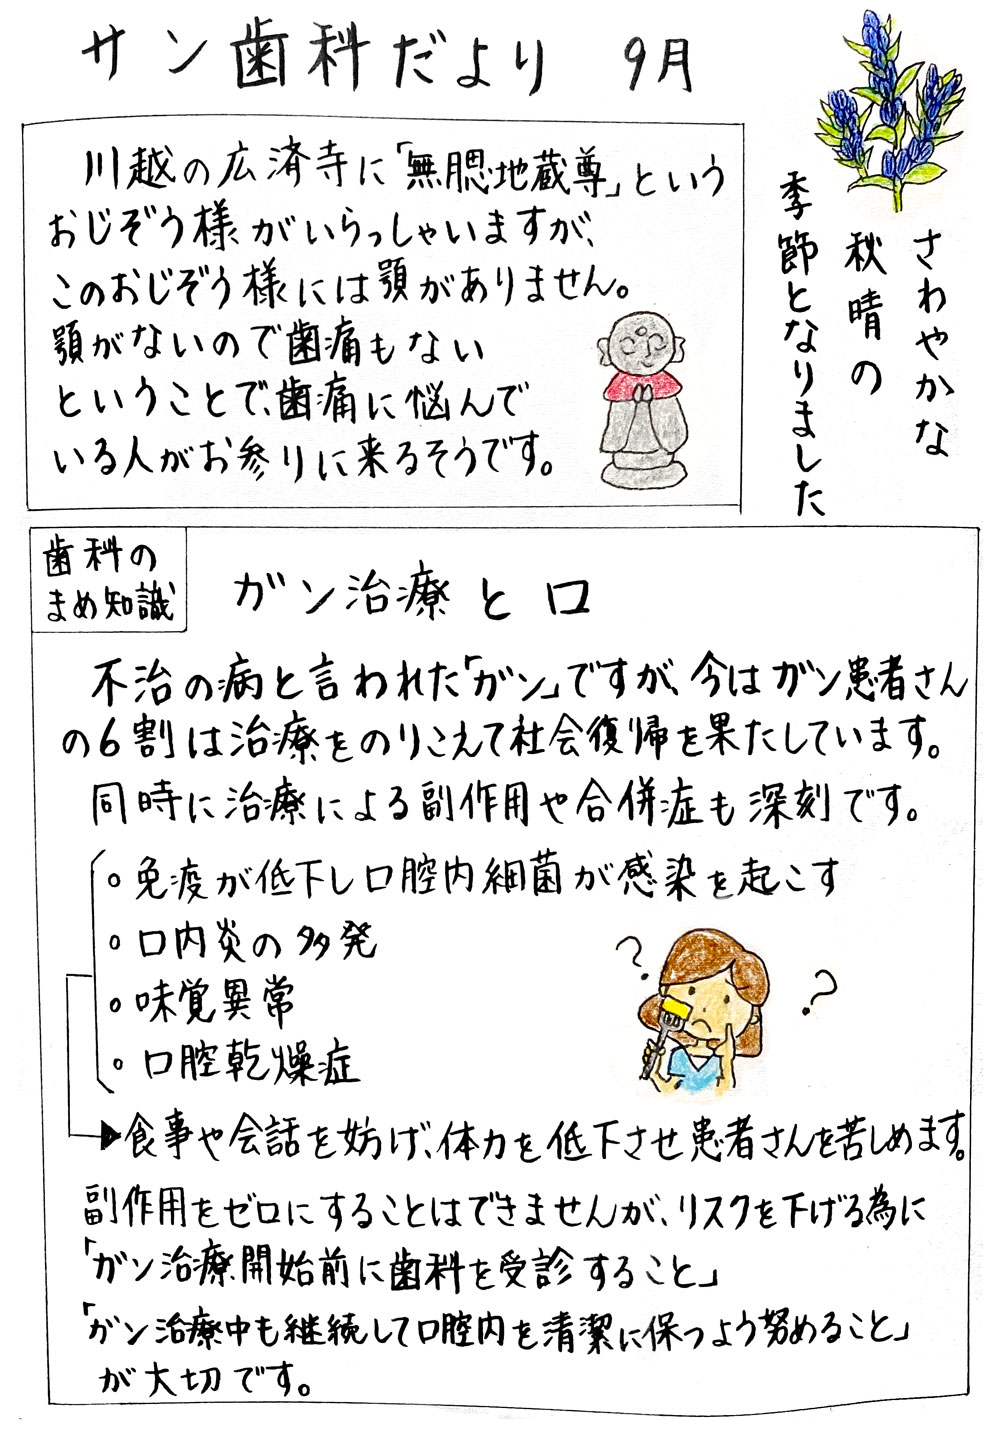 サン歯科だより 9月
さわやかな
秋晴の
季節となりました
川越の広済寺に「無腮地蔵尊」という
おじぞう様がいらっしゃいますが、
このおじぞう様には顎がありません。
顎がないので歯痛もない
ということで、歯痛に悩んで
いる人がお参りに来るそうです。
歯科の
まめ知識
ガン治療と口
不治の病と言われた「ガン」ですが、今はガン患者さん
の6割は治療をのりこえて社会復帰を果たしています。
同時に治療による副作用や合併症も深刻です。
○免疫が低下し口腔内細菌が感染を起こす
○口内炎の多発
○味覚異常
○口腔乾燥症
食事や会話を妨げ、体力を低下させ患者さんを苦しめます。
副作用をゼロにすることはできませんが、リスクを下げる為に
「ガン治療開始前に歯科を受診すること」
「ガン治療中も継続して口腔内を清潔に保つよう努めること」
が大切です。